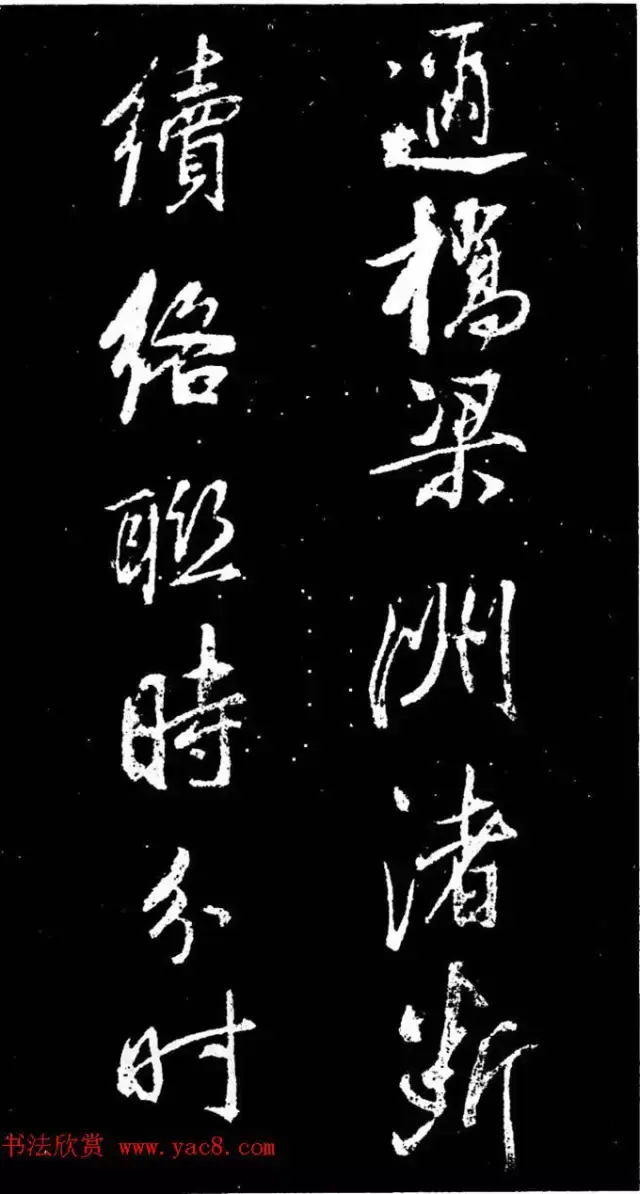 邇橋梁洲渚斷
續絡聯時分时
书法欣赏 www.yac8.com